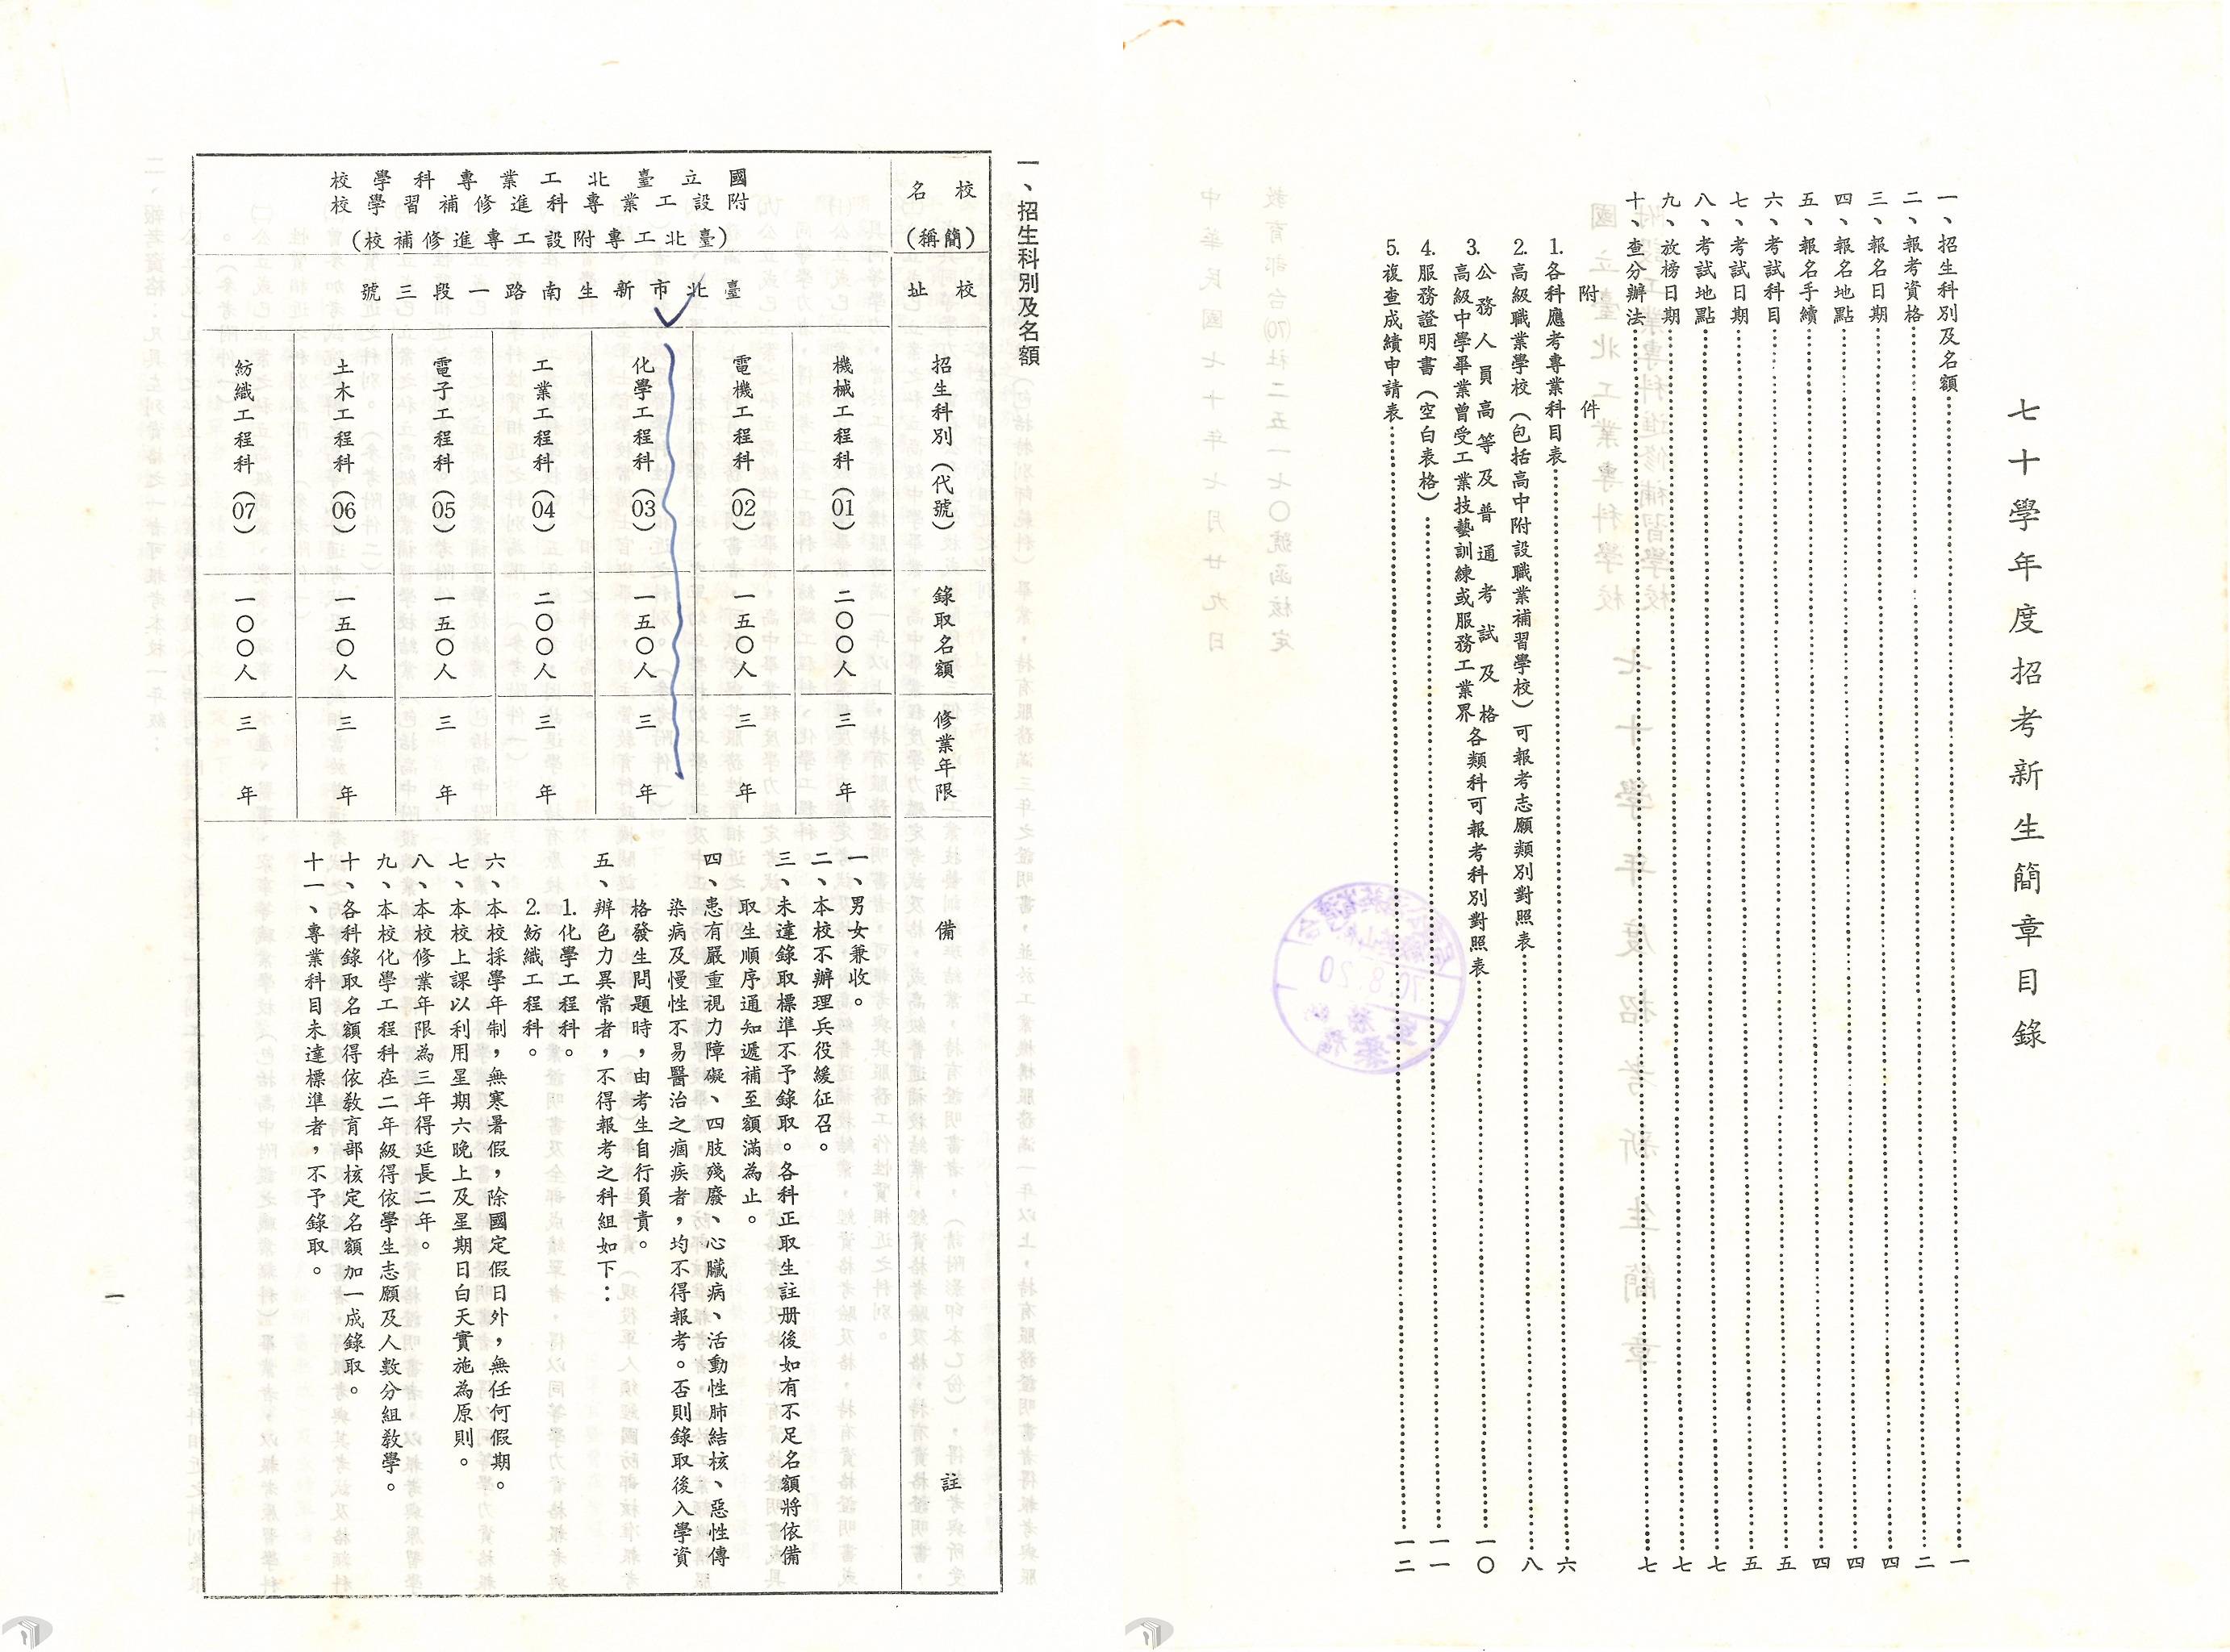 七十學年度招考新生簡章目錄
一、招生科別及名額……一
二、報考資格……二
三、報名日期……四
四、報名地點……四
五、報名手續……四
六、考試科目……五
七、考試日期……五
八、考試地點……七
九、放榜日期……七
十、查分辦法……七
附件
1.各科應考專業科目表……六
2.高級職業學校（包括高中附設職業補習學校）可報考志願類別對照表……八
3.公務人員高等及普通考試及格
高級中學畢業曾受工業技藝訓練或服務工業界
各類科可報考科別對照表……一〇
4.服務證明書（空白表格）……一一
5.複查成績申請表……一二
一、招生科別及名額
校名（簡稱）
國立臺北工業專科學校
附設工業專科進修補習學校
（臺北工專附設工專進修補校）
校址
臺北市新生南路一段三號
招生科別（代號）
機械工程科（01）
電機工程科（02）
化學工程科（03）
工業工程科（04）
電子工程科（05）
土木工程科（06）
紡織工程科（07）
錄取名額
二〇〇人
一五〇人
一五〇人
二〇〇人
一五〇人
一五〇人
一〇〇人
修業年限
三年
三年
三年
三年
三年
三年
三年
備註
一、男女兼收。
二、本校不辦理兵役緩征召。
三、未達錄取標準不予錄取。各科正取生註册後如有不足名額將依備
取生順序通知遞補至額滿為止。
四、患有嚴重視力障礙、四肢殘廢、心臟病、活動性肺結核、惡性傳
染病及慢性不易醫治之痼疾者，均不得報考。否則錄取後入學資
格發生問題時，由考生自行負責。
五、辨色力異常者，不得報考之科組如下：
1.化學工程科。
2.紡織工程科。
六、本校採學年制，無寒暑假，除國定假日外，無任何假期。
七、本校上課以利用星期六晚上及星期日白天實施為原則。
八、本校修業年限為三年得延長二年。
九、本校化學工程科在二年級得依學生志願及人數分組教學。
十、各科錄取名額得依教育部核定名額加一成錄取。
十一、專業科目未達標準者，不予錄取。
一